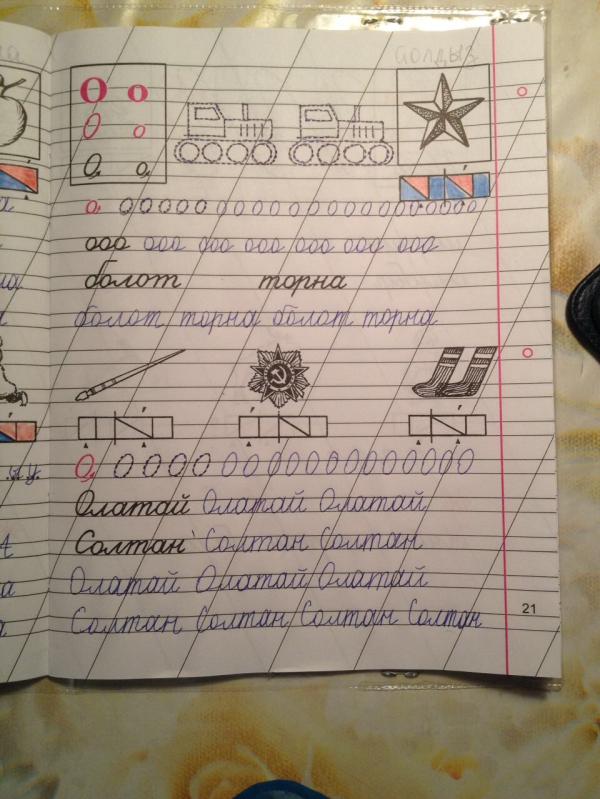 Йолдыз
О о
О о
О о
о о о о о о о о о о о о о о о о о о о о о о о
ооо ооо ооо ооо ооо ооо ооо
болот торна
болот торна болот торна
О О О О О О О О О О О О О О О О О
Олатай Олатай Олатай
Солтан Солтан Солтан
Олатай Олатай Олатай
Солтан Солтан Солтан Солтан
21